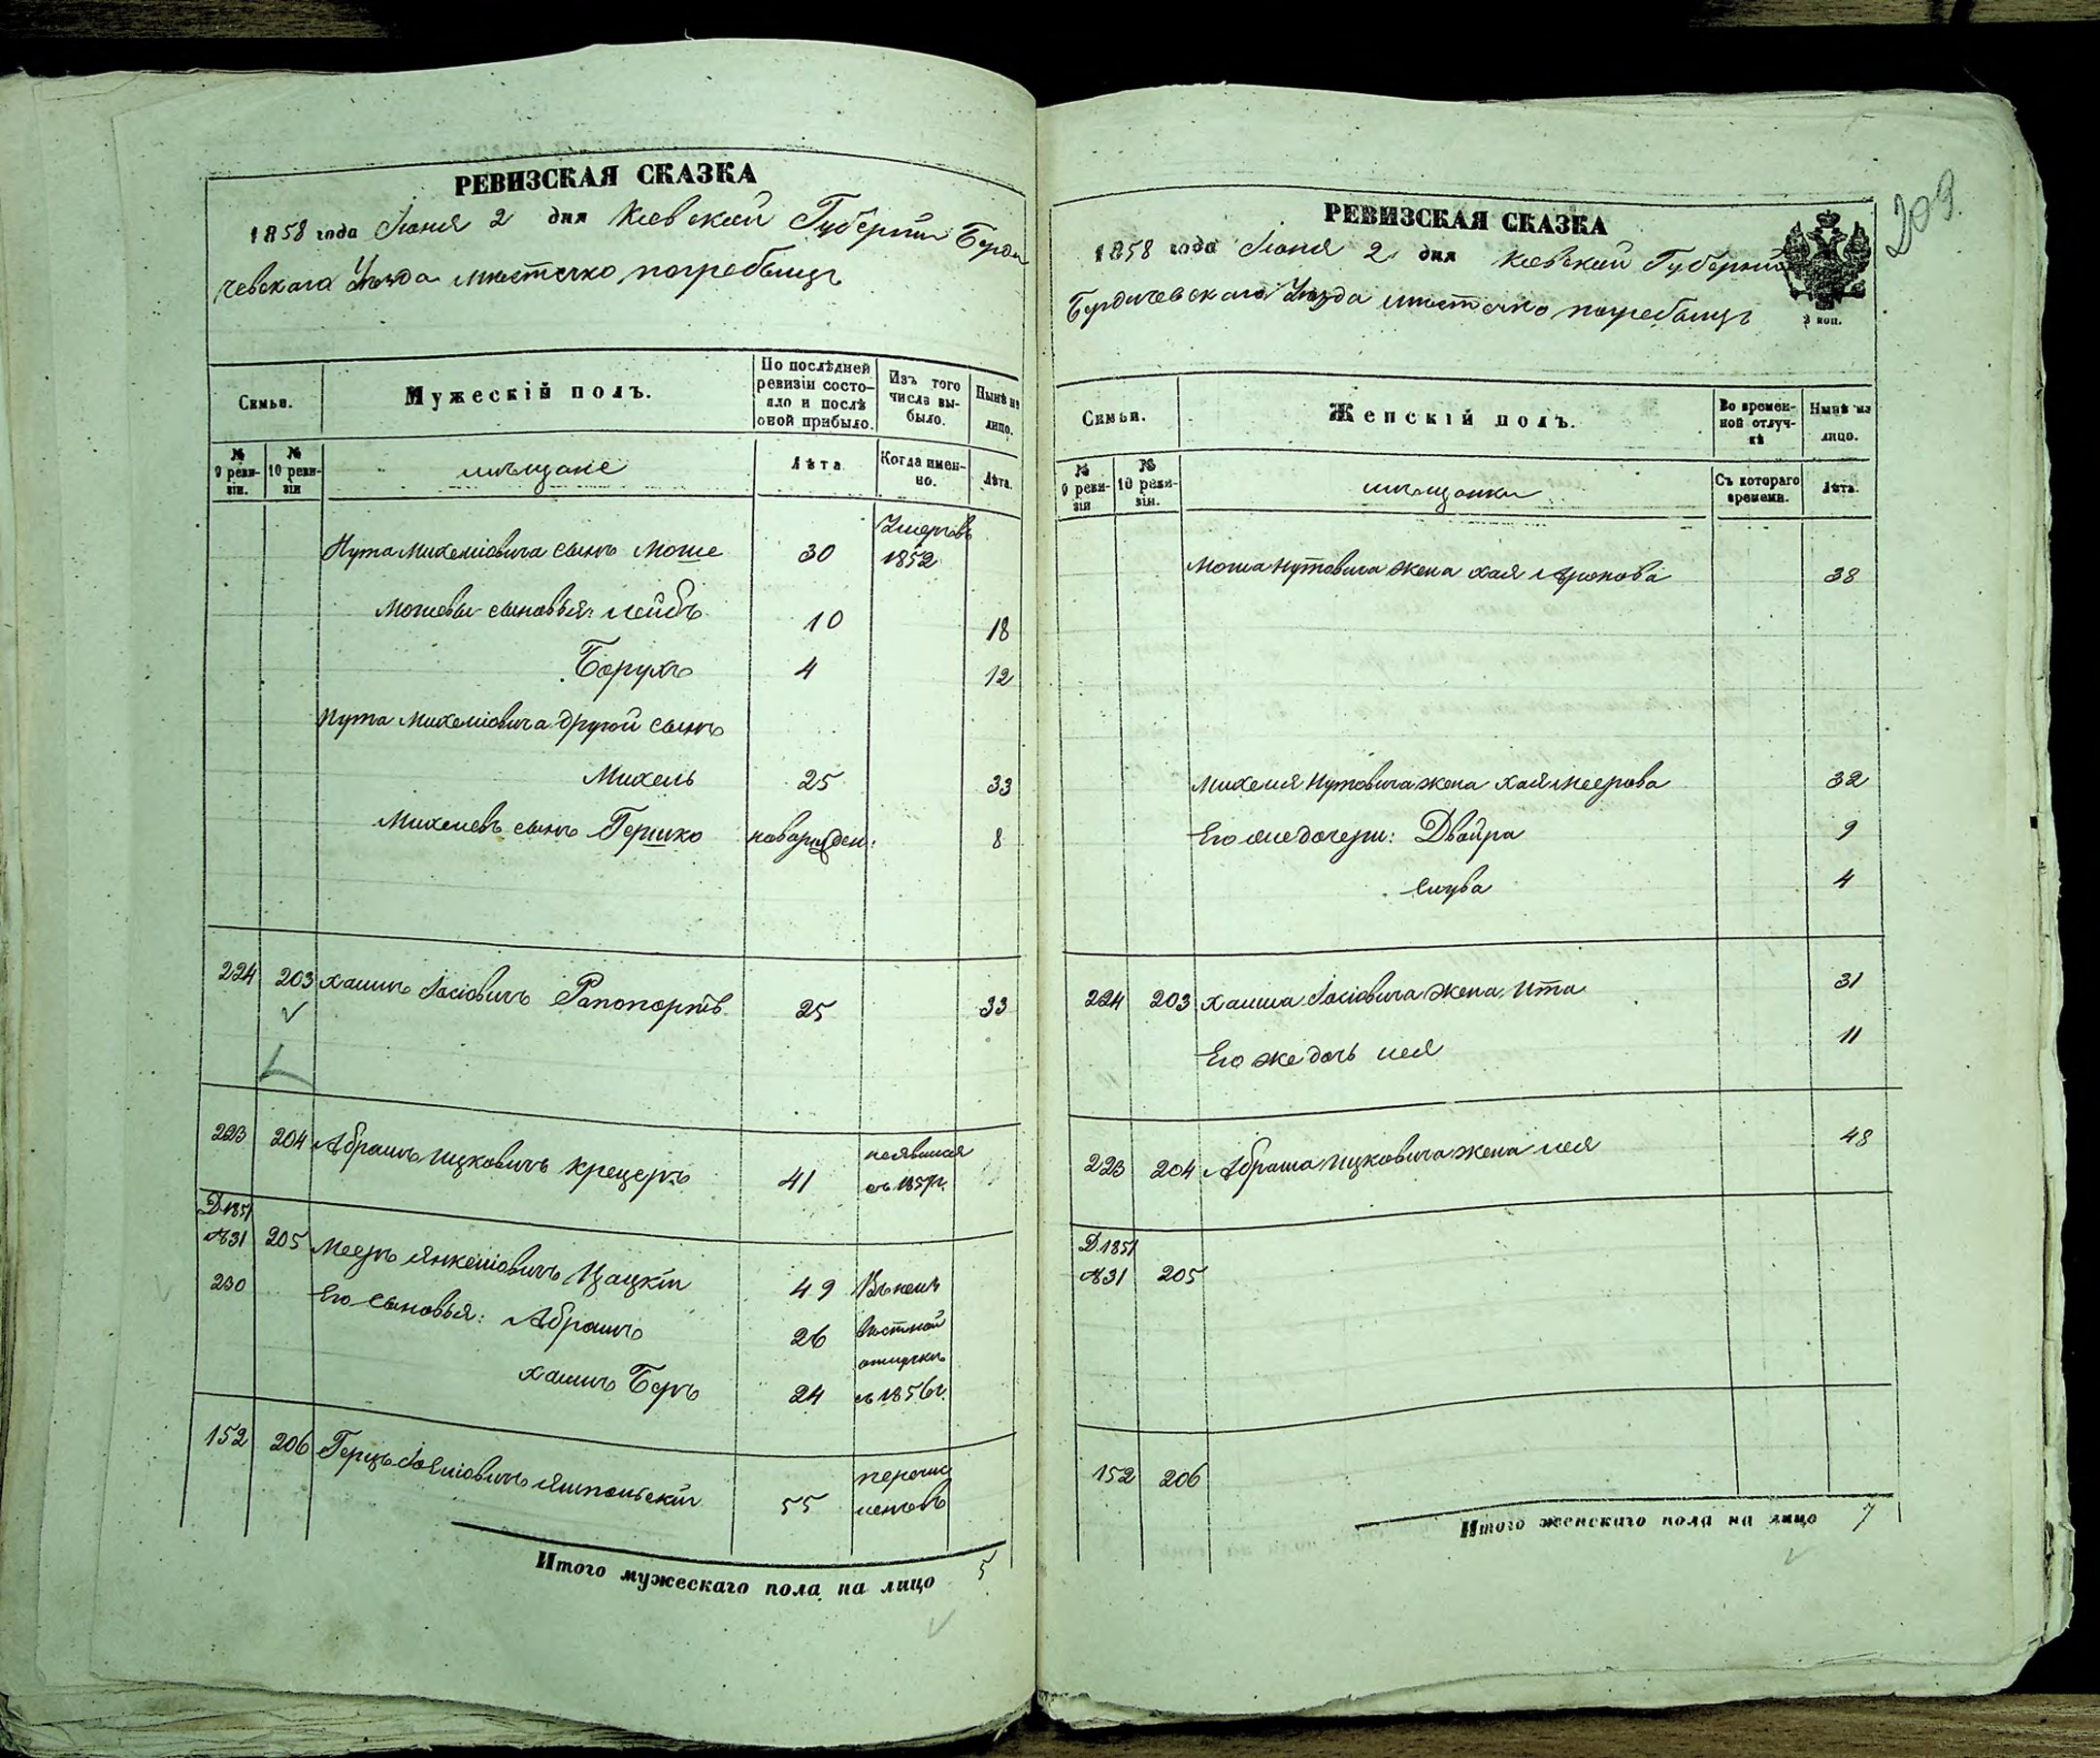 РЕВИЗСКАЯ СКАЗКА
1858 года Іюня 2 дня Кіевской Губерніи Берди
чевскаго Уѣзда мѣстечко погребищъ
Семьи.
Мужескій полъ.
По послѣдней ревизіи состо-
яло и послѣ
оной прибыло.
Изъ того
числа вы-
было.
Нынѣ на
лицо.
№
9 реви-
зіи.
№
10 реви-
зіи
мѣщане
Лѣта
Когда имен-
но.
Лѣта.
Нута Михеліовича сынъ Моше 30 Умеръ въ 1852
Мошевы сыновья: Лейбъ 10 18
Борухъ 4 12
Нута Михеліовича другой сынъ
Михель 25 33
Михелевъ сынъ Гершко новорожден: 8
224 203 Хаимъ Іосіовичъ Рапопортъ 25 33
223 204 Абрамъ Ицковичъ Крецеръ 41 неявился
съ 1857г.
Д. 1851
№31 205 Мееръ Янкеліовичъ Цацкін 49 Въ неиз
230 Его сыновья: Абрамъ 26 вѣстной
отлучкѣ
Хаимъ Беръ 24 съ 1856г.
152 206 Герцъ 55 перечис
ленъ въ
Итого мужескаго пола на лицо 5
209.
РЕВИЗСКАЯ СКАЗКА
1858 года Іюня 2 дня Кіевской Губерніи
Бердичевскаго Уѣзда мѣстечко погребищъ
3 коп.
Семьи.
Женскій полъ.
Во времен-
ной отлуч-
кѣ
Нынѣ на
лицо.
№
9 реви-
зіи
№
10 реви-
зіи.
мѣщанки
Съ котораго
времени.
Лѣта.
Моша Нутовича жена Хая Аронова 38
Михеля Нутовича жена Хая Меерова 32
Его же дочери: Двойра 9
4
224 203 Хаима Іосіовича жена Ита 31
Его же дочь Лея 11
223 204 Абрама Ицковича жена Лея 48
Д. 1851
№31 205
152 206
Итого женскаго пола на лицо 7